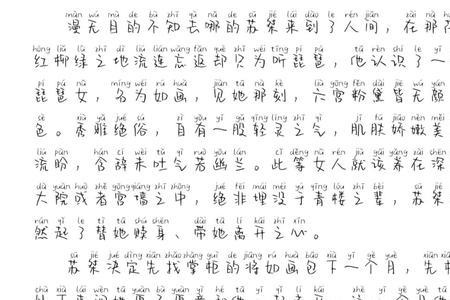 màn wú mù de bù zhī qù nǎ de sū jié lái dào le rén jiān zài nà
漫无目的不知去哪的苏桀来到了人间,在那
hóng liǔ lǜ zhī dì liú lián wàng fǎn què zhǐ wéi tīng pí pá tā rèn shí le yī
红柳绿之地流连忘返却只为听琵琶,他认识了一
pí pá nǚ míng wéi rú huà jiàn tā nà kè liù gōng fěn dài jiē wú yán
琵琶女,名为如画,见她那刻,六宫粉黛皆无颜
sè xiù yǎ jué sú zì yǒu yì gǔ qīng líng zhī qì jī fū jiāo nèn měi
色。秀雅绝俗,自有一股轻灵之气,肌肤娇嫩美
liú pàn hán cí wèi tǔ qì ruò yōu lán cǐ děng nǚ rén jiù gāi yǎng zài shēn
流盼,含辞未吐气若幽兰。此等女人就该养在深
dà yuàn huò zhě gōng qiáng zhī zhōng jué fēi mái méi yú qīng lóu zhī bèi sū jié
大院或者宫墙之中,绝非埋没于青楼之辈,苏桀
rán qǐ le tì tā shú shēn dài tā lí kāi zhī xīn
然起了替她赎身、带她离开之心。
sū jié jué dìng xiān zhǎo zhǎng guì de jiāng rú huà bāo xià yī gè yuè xiān
苏桀决定先找掌柜的将如画包下一个月,先